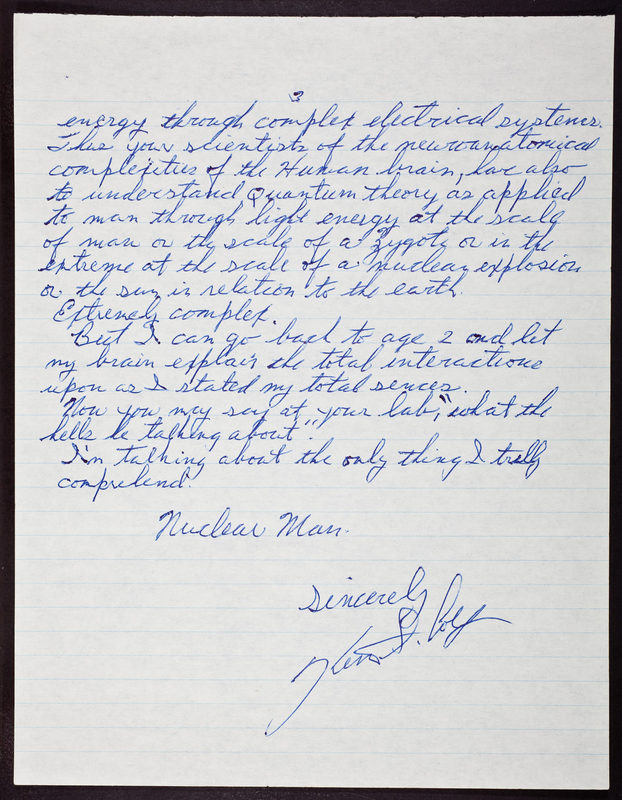 3
energy through complex electrical systems.
Thus your scientists of the neuroanatomical
complexities of the Human brain, have also
to understand Quantum theory as applied
to man through light energy at the scale
of man or the scale of a zygote or in the
extreme at the scale of a nuclear explosion
or the sun in relation to the earth.
Extremely complex.
But I can go back to age 2 and let
my brain explain the total interactions
upon as I stated my total sences.
Now you may say at your lab, "what the
hells he talking about".
I'm talking about the only thing I trully
comprehend.
Nuclear Man.
Sincerely